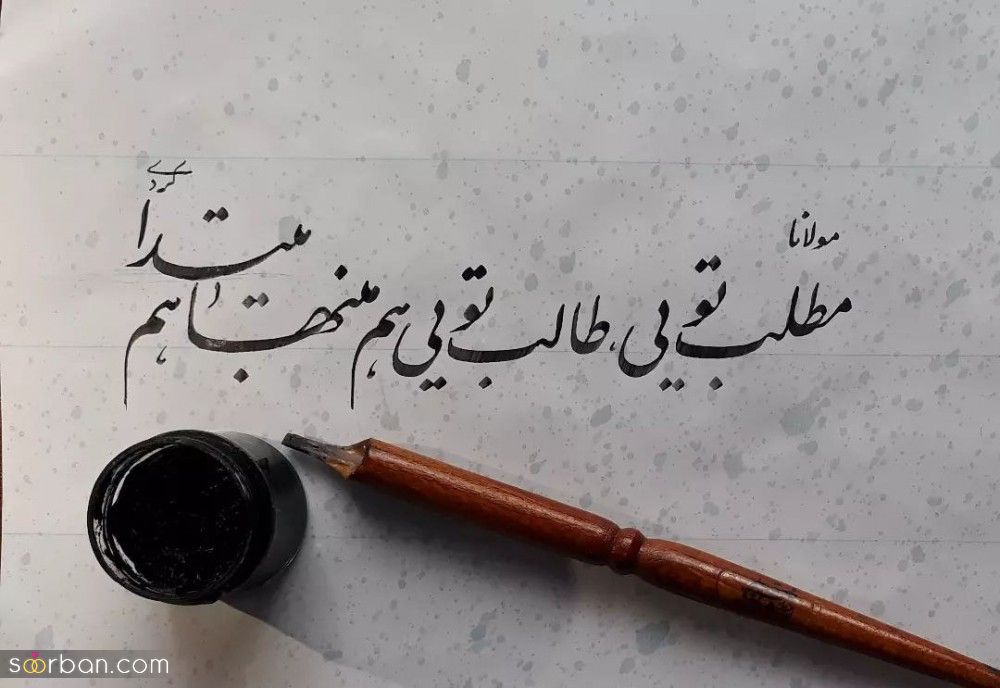 مولانا
مطلب تویی، طالب تویی هم منتها هم مبتدا
soorban.com